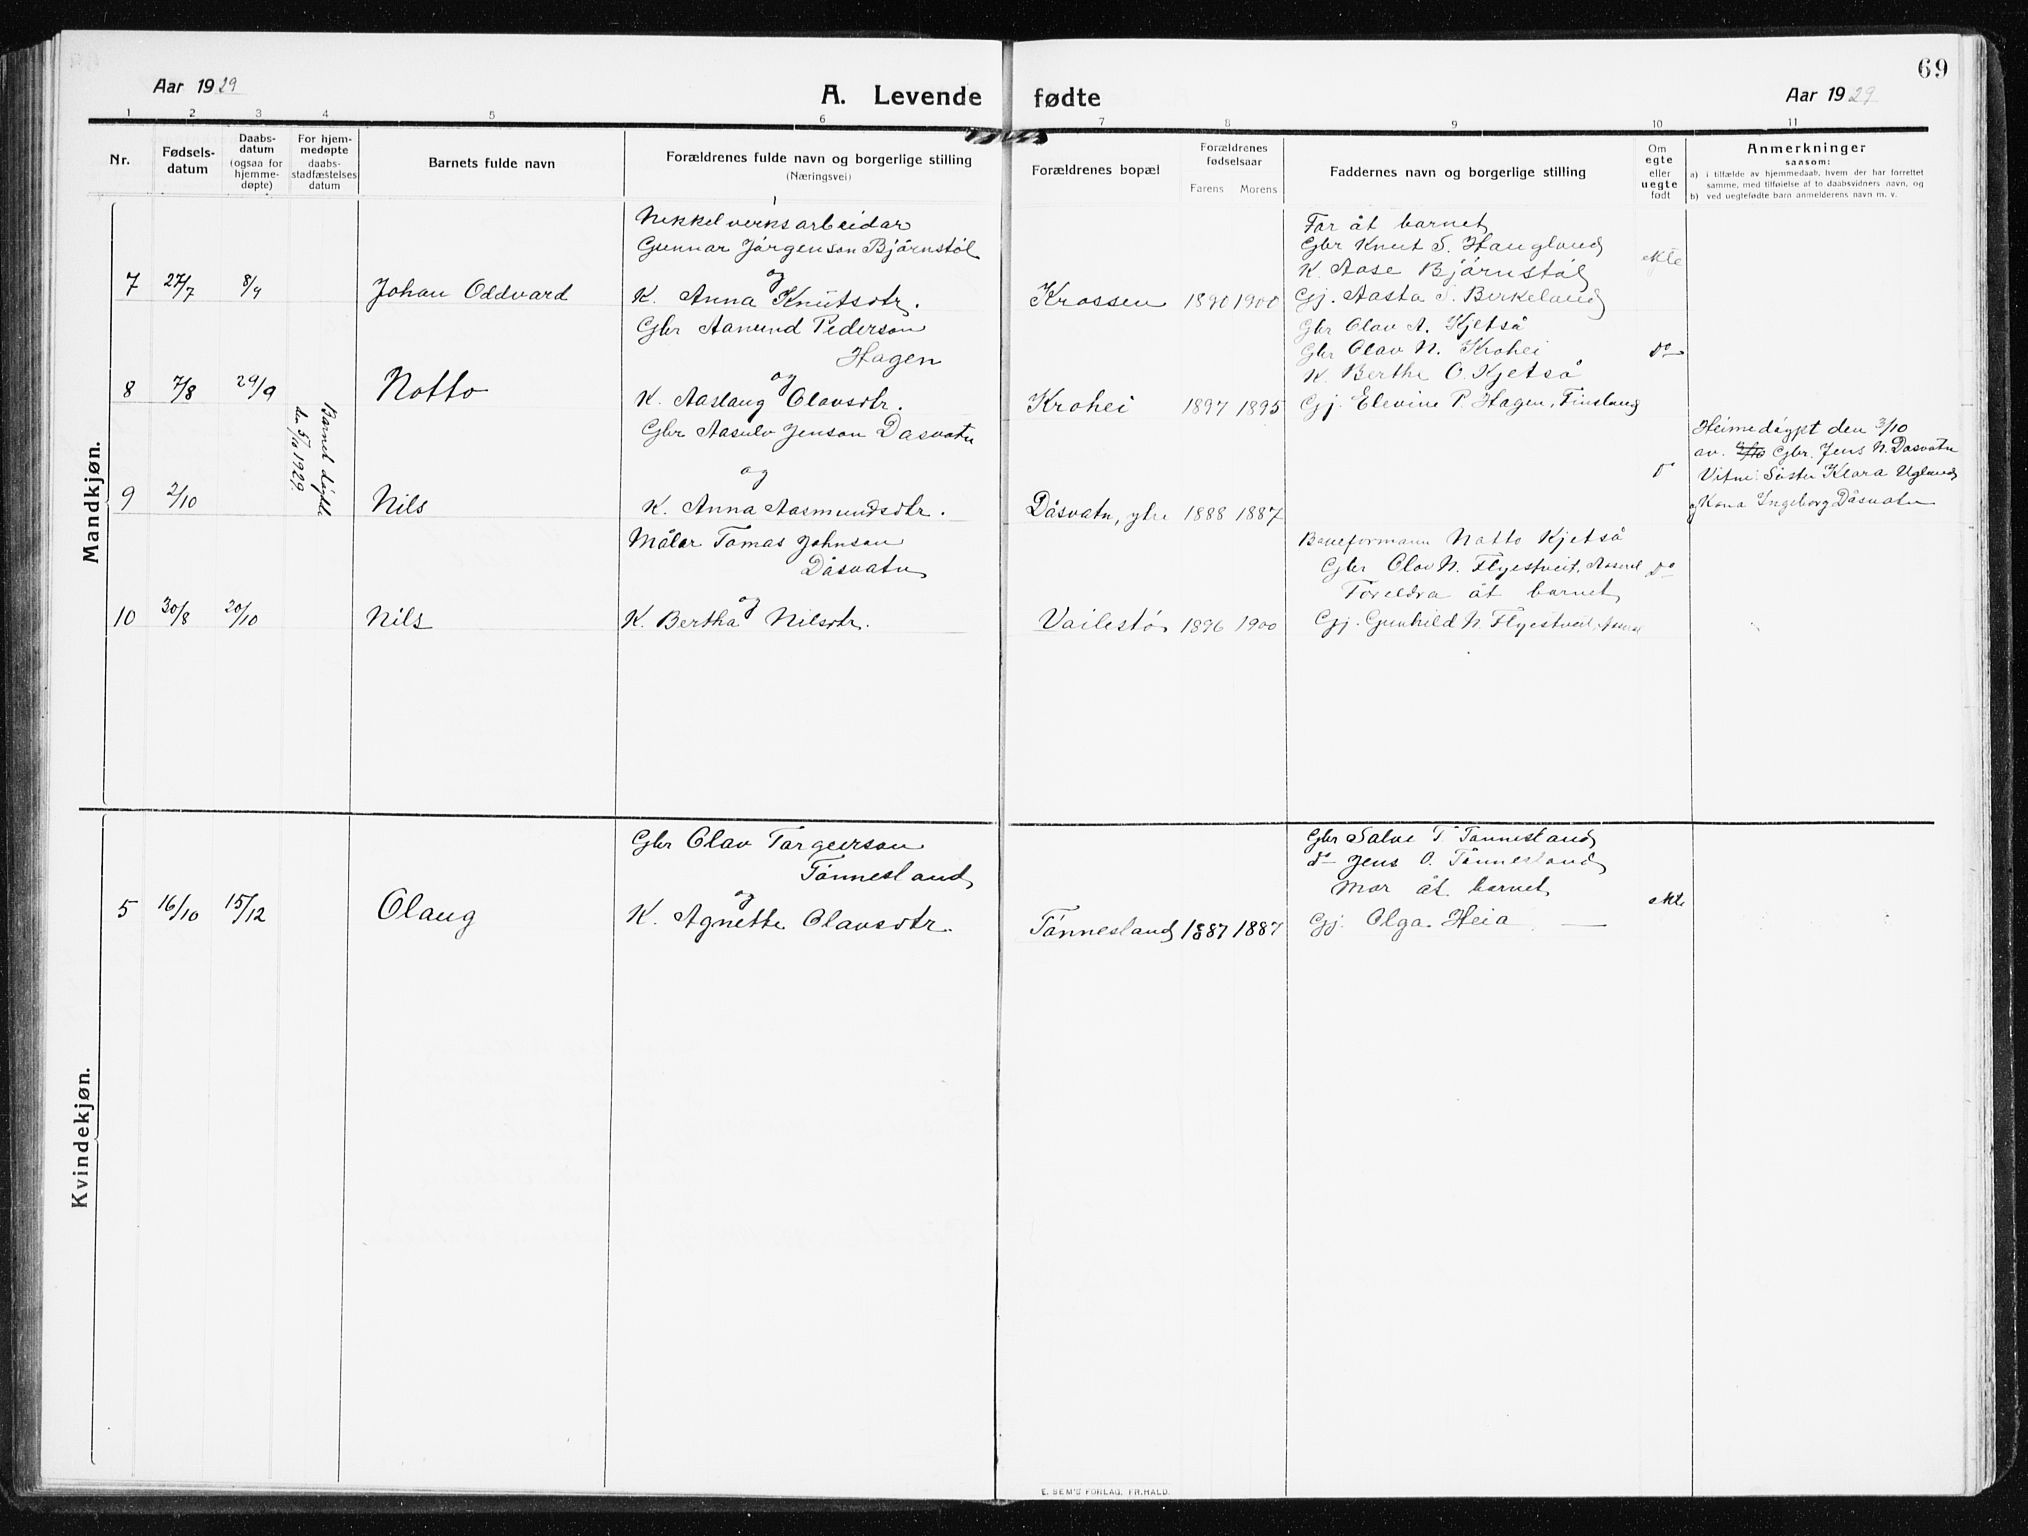 69
Aar 1929
A. Levende fødte
Aar 1929
1 2 3 4 5 6 7 8 9 10 11
Nr.
Fødsels-
datum
Daabs-
datum
(ogsaa for
hjemme-
døpte)
For hjem-
medøpte
daabs-
stadfæstelses
datum
Barnets fulde navn
Forældrenes fulde navn og borgerlige stilling
(Næringsvei)
Forældrenes bopæl
Forældrenes
fødselsaar
Farens Morens
Faddernes navn og borgerlige stilling
Om
egte
eller
uegte
født
Anmerkninger
saasom:
a) i tilfælde av hjemmedaab, hvem der har forrettet
samme, med tilføielse af to daabsvidners navn, og
b) ved uegtefødte barn anmelderens navn m. v.
Mandkjøn.
Nikkelverksarbeidar
Gunnar Jørgenson Bjørnstøl
og
7 27/7 8/9 Johan Oddvard K. Anna Knutsdtr. Krossen 1890 1900
Far åt barnet
Gbr Knut S. Haugland
K. Aase Bjørnstøl
Gj. Aasta S. Birkeland
ekte
Gbr Aanund Pederson
Hagen
og
8 7/8 29/9 Notto K. Aaslaug Olavsdtr. Krohei 1897 1895
Gbr Olav A. Kjetså
Gbr Olav N. Krohei
K. Berthe O. Kjetså
Gj. Elevine P. Hagen, Finsland
do
Gbr Aasulv Jenson Dasvatn
og
9 2/10 Barnet døydde
den 5/10 1929.
Nils K. Anna Aasmundsdtr. Dåsvatn, ytre 1888 1887
do
Heimedøypt den 3/10
av Gbr. Jens N. Dasvatn
Vitne: Søster Klara Ugland
og Kona Ingeborg Dåsvatn
Målar Tomas Johnson
Dåsvatn
og
10 30/8 20/10 Nils K. Bertha Nilsdtr. Vailestø 1896 1900
Baneformann Notto Kjetså
Gbr Olav N. Flyestveit, Aaseral
Foreldra åt barnet
Gj. Gunhild N. Flyestveit, Aaseral
do
Kvindekjøn.
Gbr Olav Targeirson
Tønnesland
og
5 16/10 15/12 Olaug K. Agnette Olavsdtr. Tønnesland 1887 1887
Gbr Salve T. Tønnesland
do Jens O. Tønnesland
Mor åt barnet
Gj. Olga Heia —
ekte
E. SEM'S FORLAG, FR.HALD.